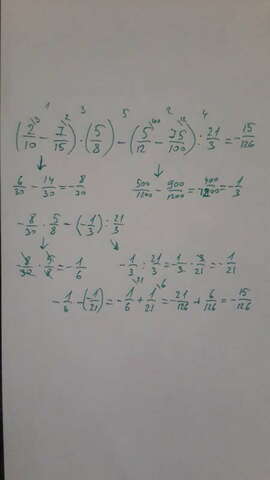 1 2 3 5 2 4
(2/10 - 7/15) · (5/8) - (5/12 - 75/100) : 21/3 = -15/126
6/30 - 14/30 = -8/30 500/1200 - 900/1200 = 400/1200 = -1/3
-8/30 · 5/8 - (-1/3) : 21/3
8/30 · 5/8 = -1/6 -1/3 : 21/3 = -1/3 · 3/21 = -1/21
-1/6 - (-1/21) = -1/6 + 1/21 = -21/126 + 6/126 = -15/126